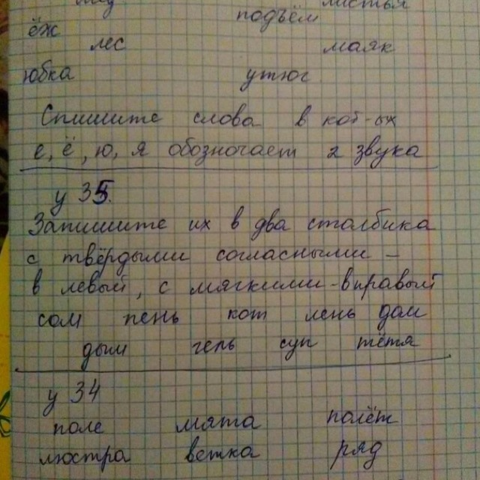 листья
ёж подъём
лес маяк
юбка утюг
Спишите слова в кот-ых
е, ё, ю, я обозночает 2 звука
у 35.
Запишите их в два столбика
с твёрдыми согласными -
в левый, с мягкими - в правый
сом пень кот лень дом
дым цепь суп тётя
у 34
поле мята полёт
люстра ветка ряд